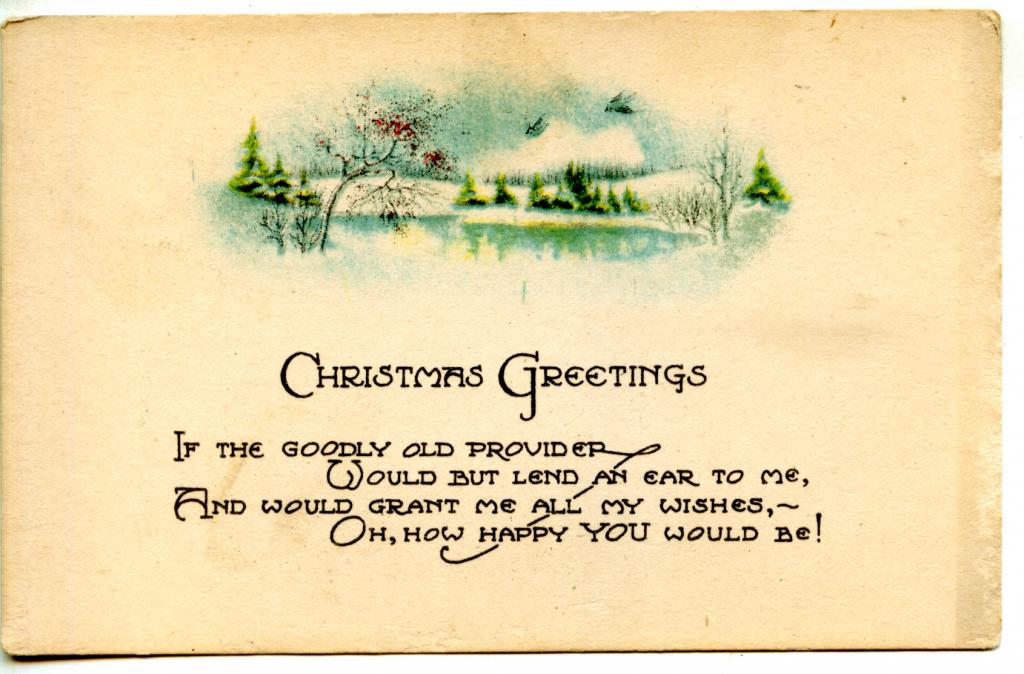 Christmas Greetings
If the goodly old provider
Would but lend an ear to me,
And would grant me all my wishes,~
Oh, how happy YOU would be!